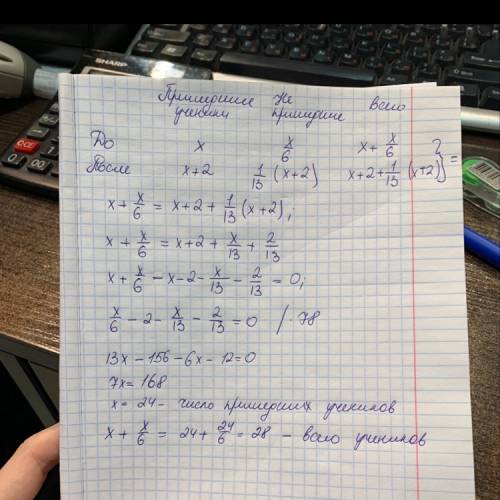 SHARP
Пришедшие Не всего
ученики пришедшие
До x x/6 x + x/6
После x+2 1/13 (x+2) x+2+1/13 (x+2) } =
x + x/6 = x+2+ 1/13 (x+2);
x + x/6 = x+2 + x/13 + 2/13
x + x/6 - x - 2 - x/13 - 2/13 = 0;
x/6 - 2 - x/13 - 2/13 = 0 /·78
13x - 156 - 6x - 12 = 0
7x = 168
x = 24 - число пришедших учеников
x + x/6 = 24 + 24/6 = 28 - всего учеников